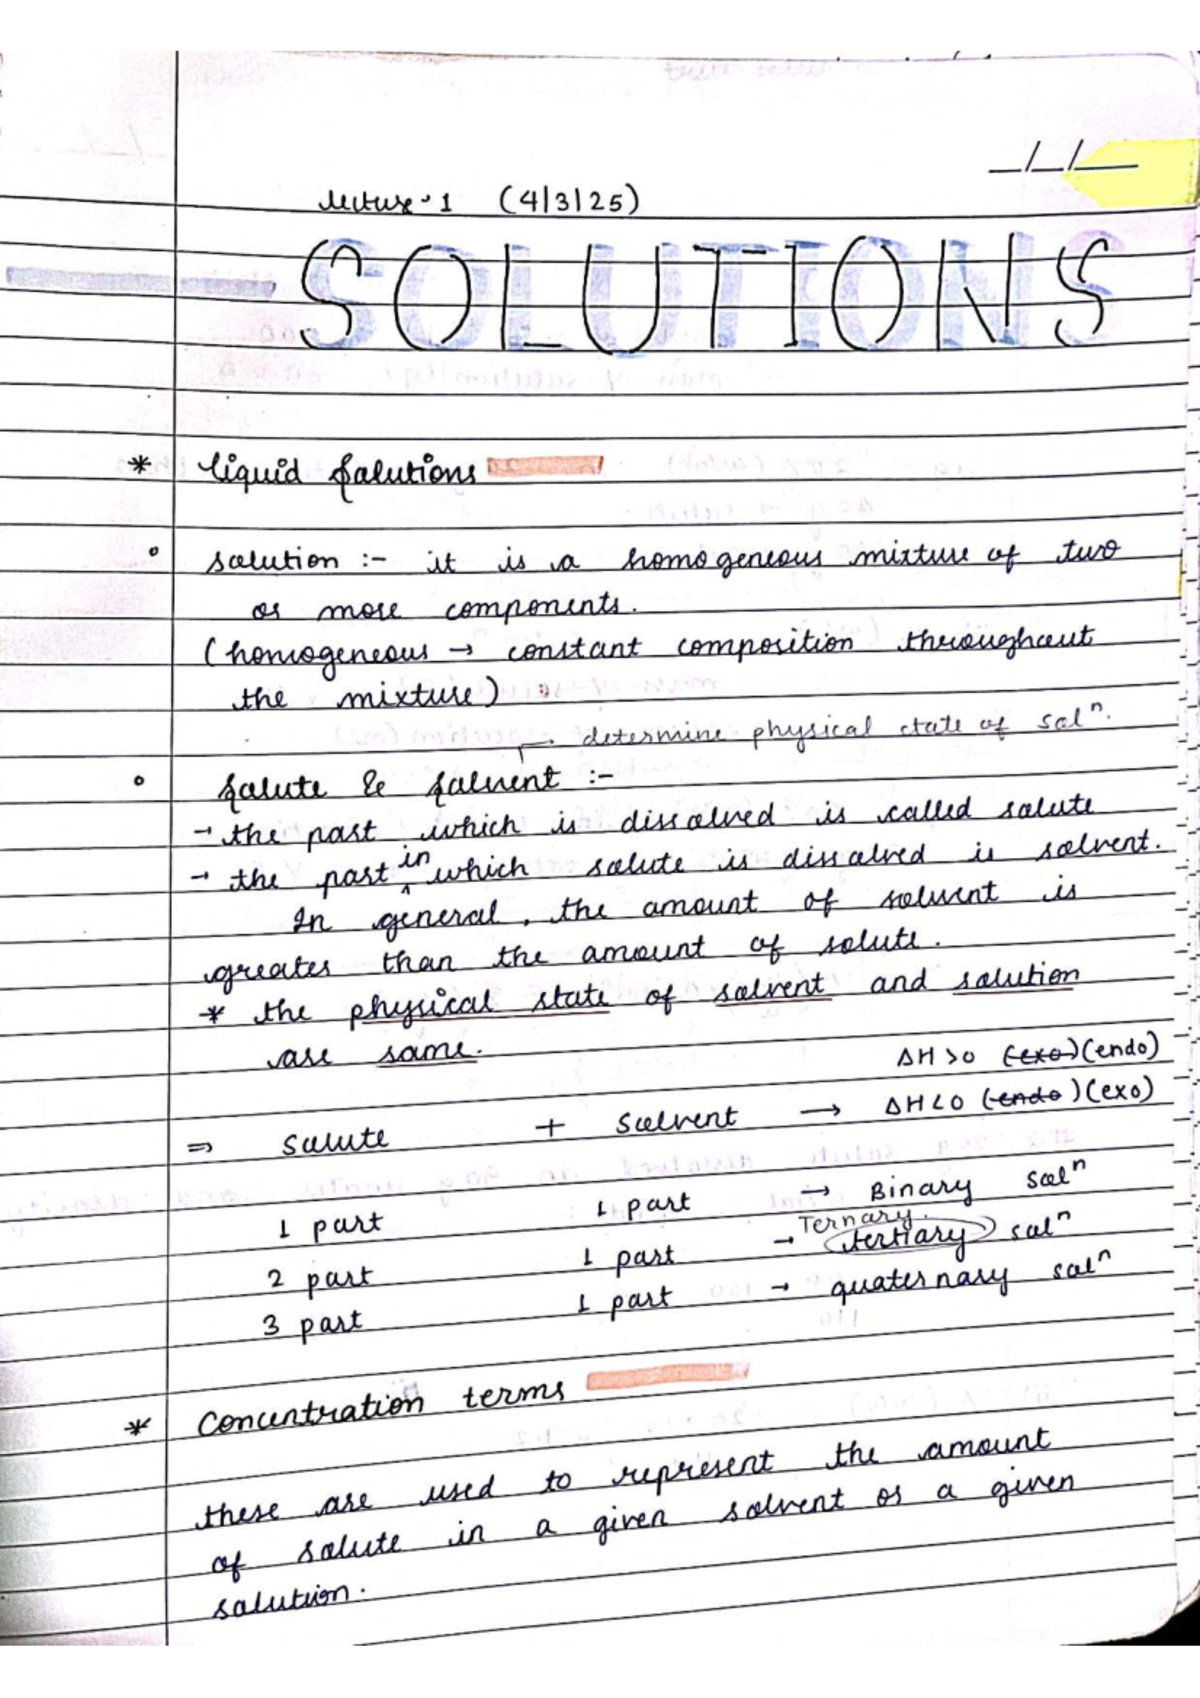 _/_/__
Lecture-1 (4/3/25)
SOLUTIONS
* Liquid Solutions
° solution :- it is a homogeneous mixture of two
or more components.
(homogeneous → constant composition throughout
the mixture)
→ determine physical state of solⁿ.
° Solute & Solvent :-
→ the part which is dissolved is called solute
→ the part in which solute is dissolved is solvent.
In general, the amount of solvent is
greater than the amount of solute.
* the physical state of solvent and solution
are same.
ΔH>0 (exo)(endo)
⇒ solute + solvent → ΔH<0 (endo)(exo)
1 part 1 part → Binary solⁿ
Ternary.
2 part 1 part → (tertiary) solⁿ
3 part 1 part → quaternary solⁿ
* Concentration terms
these are used to represent the amount
of solute in a given solvent or a given
solution.